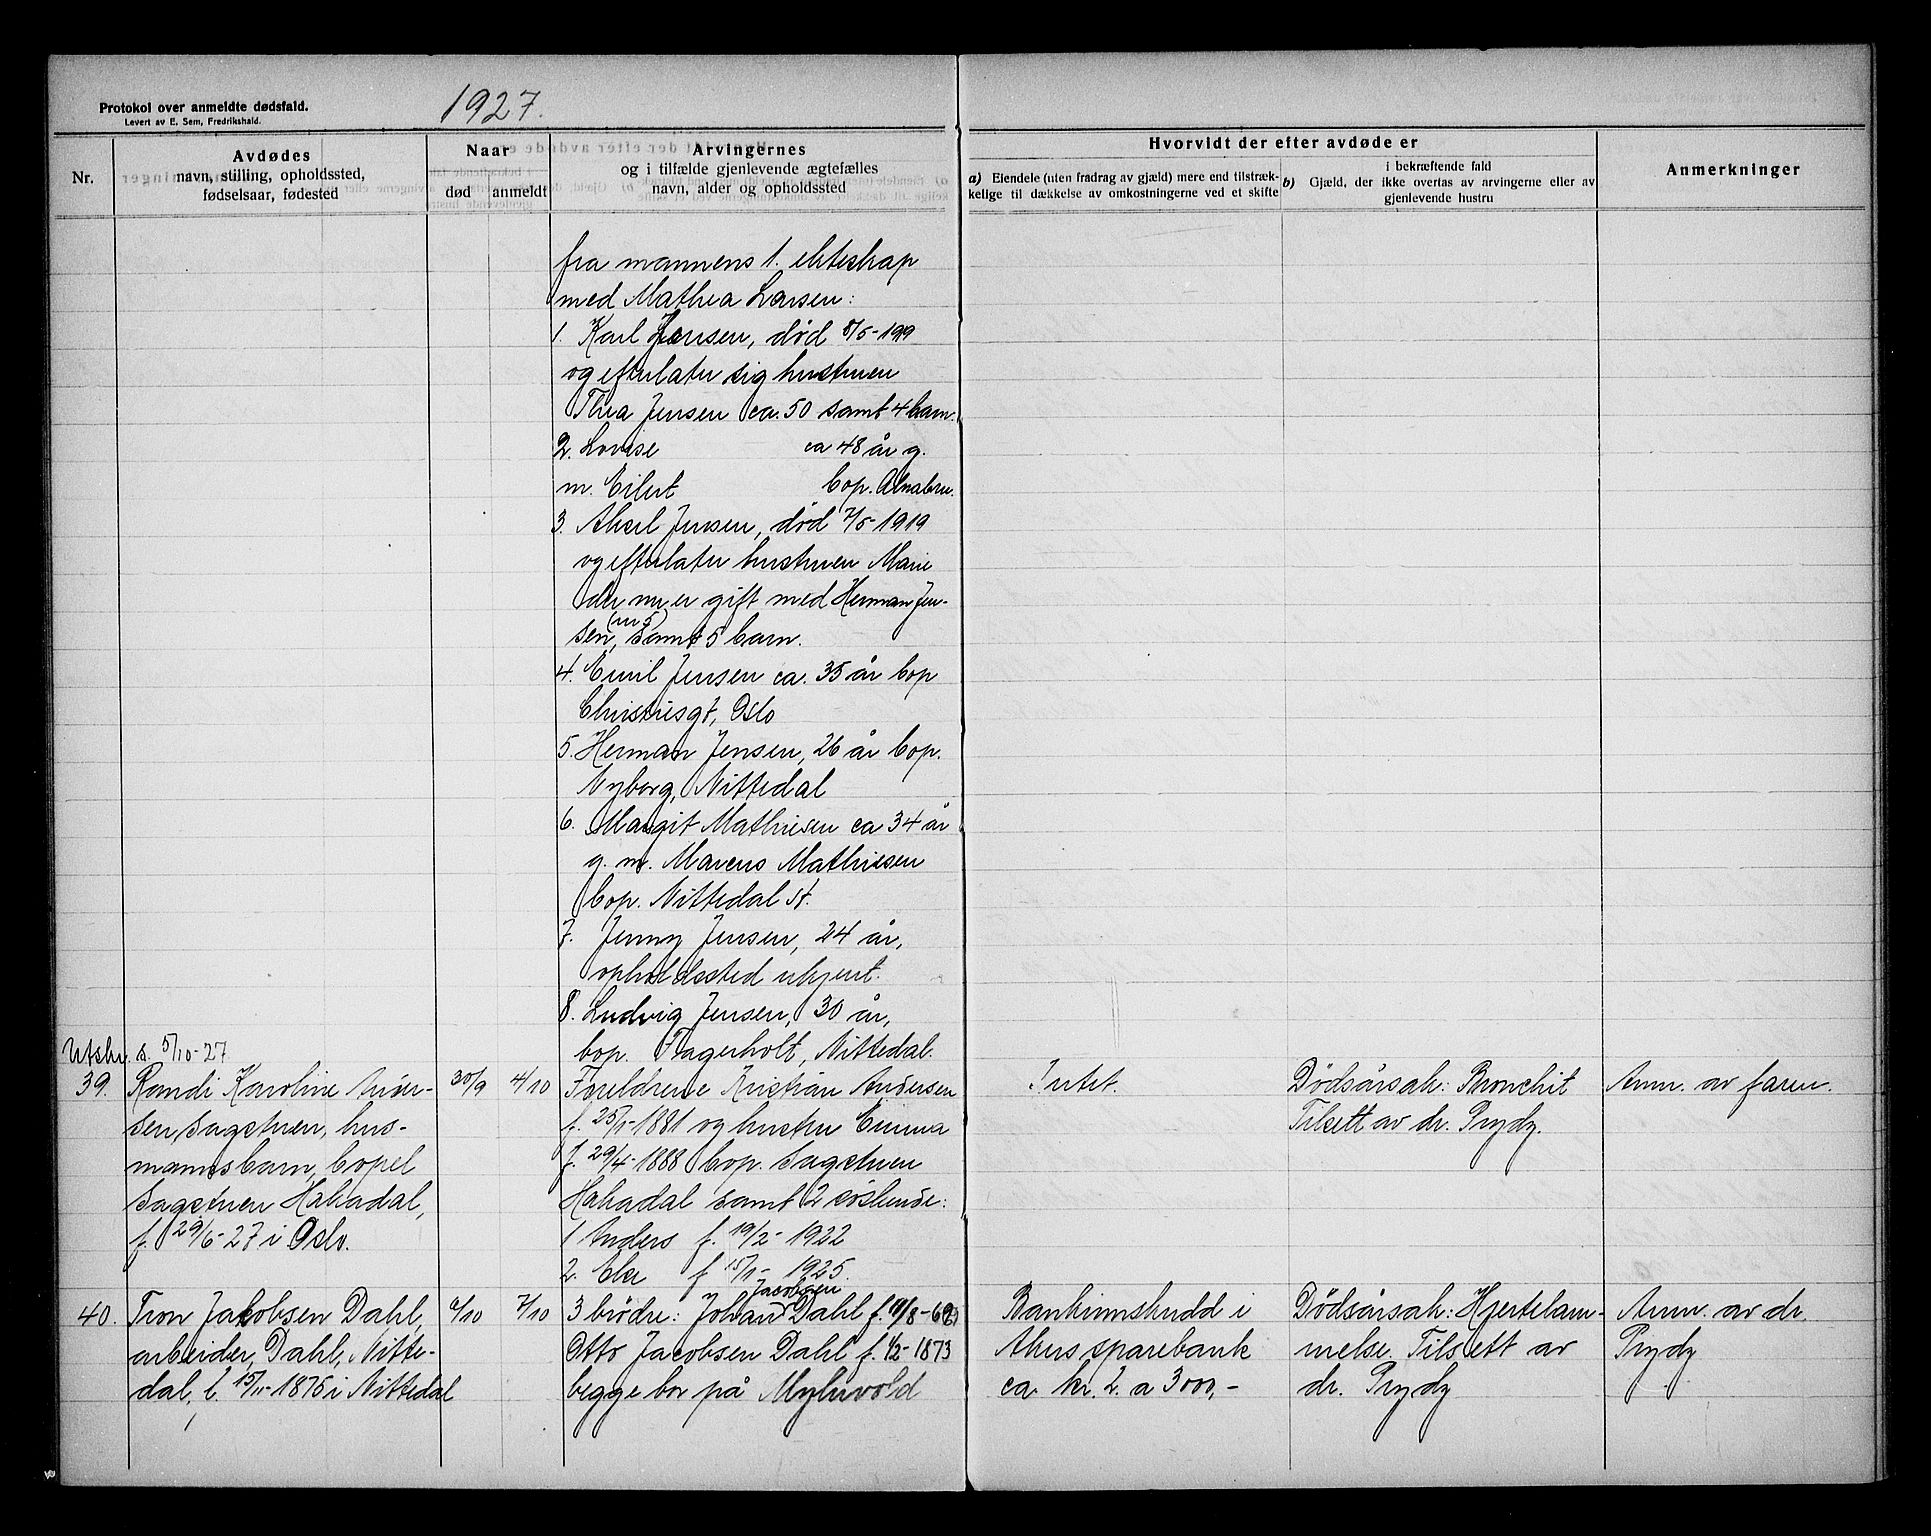 Protokol over anmeldte dødsfald.
Levert av E. Sem, Fredrikshald.
1927.
Nr.
Avdødes
navn, stilling, opholdssted,
fødselsaar, fødested
Naar
død
anmeldt
Arvingernes
og i tilfælde gjenlevende ægtefælles
navn, alder og opholdssted
Hvorvidt der efter avdøde er
a) Eiendele (uten fradrag av gjæld) mere end tilstræk-
kelige til dækkelse av omkostningerne ved et skifte
i bekræftende fald
b) Gjæld, der ikke overtas av arvingerne eller av
gjenlevende hustru
Anmerkninger
fra mannens 1. ekteskap
med Mathea Larsen:
1. Karl Jensen, død 8/5-1919
og efterlater sig hustruen
Thea Jensen ca. 50 samt 4 barn.
2. Lovise ca 48 år g.
m. Eilert bop. Alnabru.
3. Aksel Jensen, død 7/5-1919
og efterlater hustruen Marie
der nu er gift med Herman Jen-
(nr 5)
sen, samt 5 barn.
4. Emil Jensen ca. 35 år bop
Christiesgt, Oslo
5. Herman Jensen, 26 år bop.
Nyborg, Nittedal
6. Margit Mathiesen ca 34 år
g. m. Marcus Mathiesen
bop. Nittedal st.
7. Jenny Jensen, 24 år,
opholdssted ukjent.
8. Ludvig Jensen, 30 år,
bop. Fagerholt, Nittedal.
Utskr. s. 5/10-27
39.
Randi Karoline Ander-
sen Sagstuen, hus-
mannsbarn, bopel
Sagstuen Hakadal,
f. 29/6-27 i Oslo.
30/9
4/10
Foreldrene Kristian Andersen
f. 25/1-1881 og hustru Emma
f. 29/4-1888 bop. Sagstuen
Hakadal samt 2 søskende:
1 Anders f. 19/2-1922
2. Else f 15/1-1925.
Intet.
Dödsårsak: Bronchit
Tilsett av dr. Prydz.
Anm. av faren.
40.
Tron Jakobsen Dahl,
arbeider, Dahl, Nitte-
dal, f. 15/11-1875 i Nittedal
6/10
7/10
Jacobsen
3 brødre: Johan Dahl f. 19/8-69
Otto Jacobsen Dahl f. 1/2-1873
begge bor på Myhrvold
Bankinnskudd i
Akers sparebank
ca. kr. 2 a 3000,-
Dödsårsak: Hjertelam-
melse. Tilsett av
dr. Prydz
Anm. av dr.
Prydz